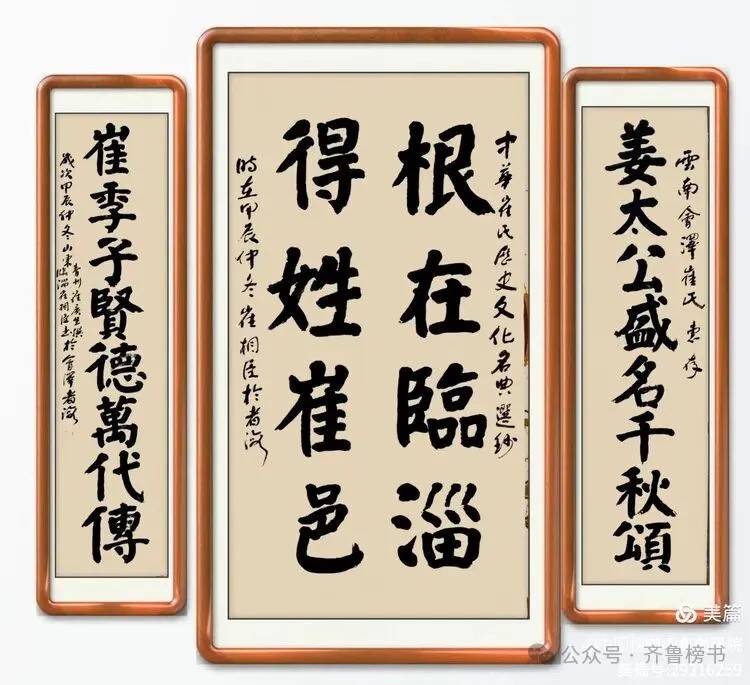 雲南會澤崔氏惠存
姜太公盛名千秋頌
中華崔氏歷史文化名典選鈔
根在臨淄
得姓崔邑
時在甲辰仲冬崔桐臣於者海
崔季子賢德萬代傳
歲次甲辰仲冬山東臨淄崔桐臣書於會澤者海
美篇
公众号·齐鲁榜书
美篇号:29316259